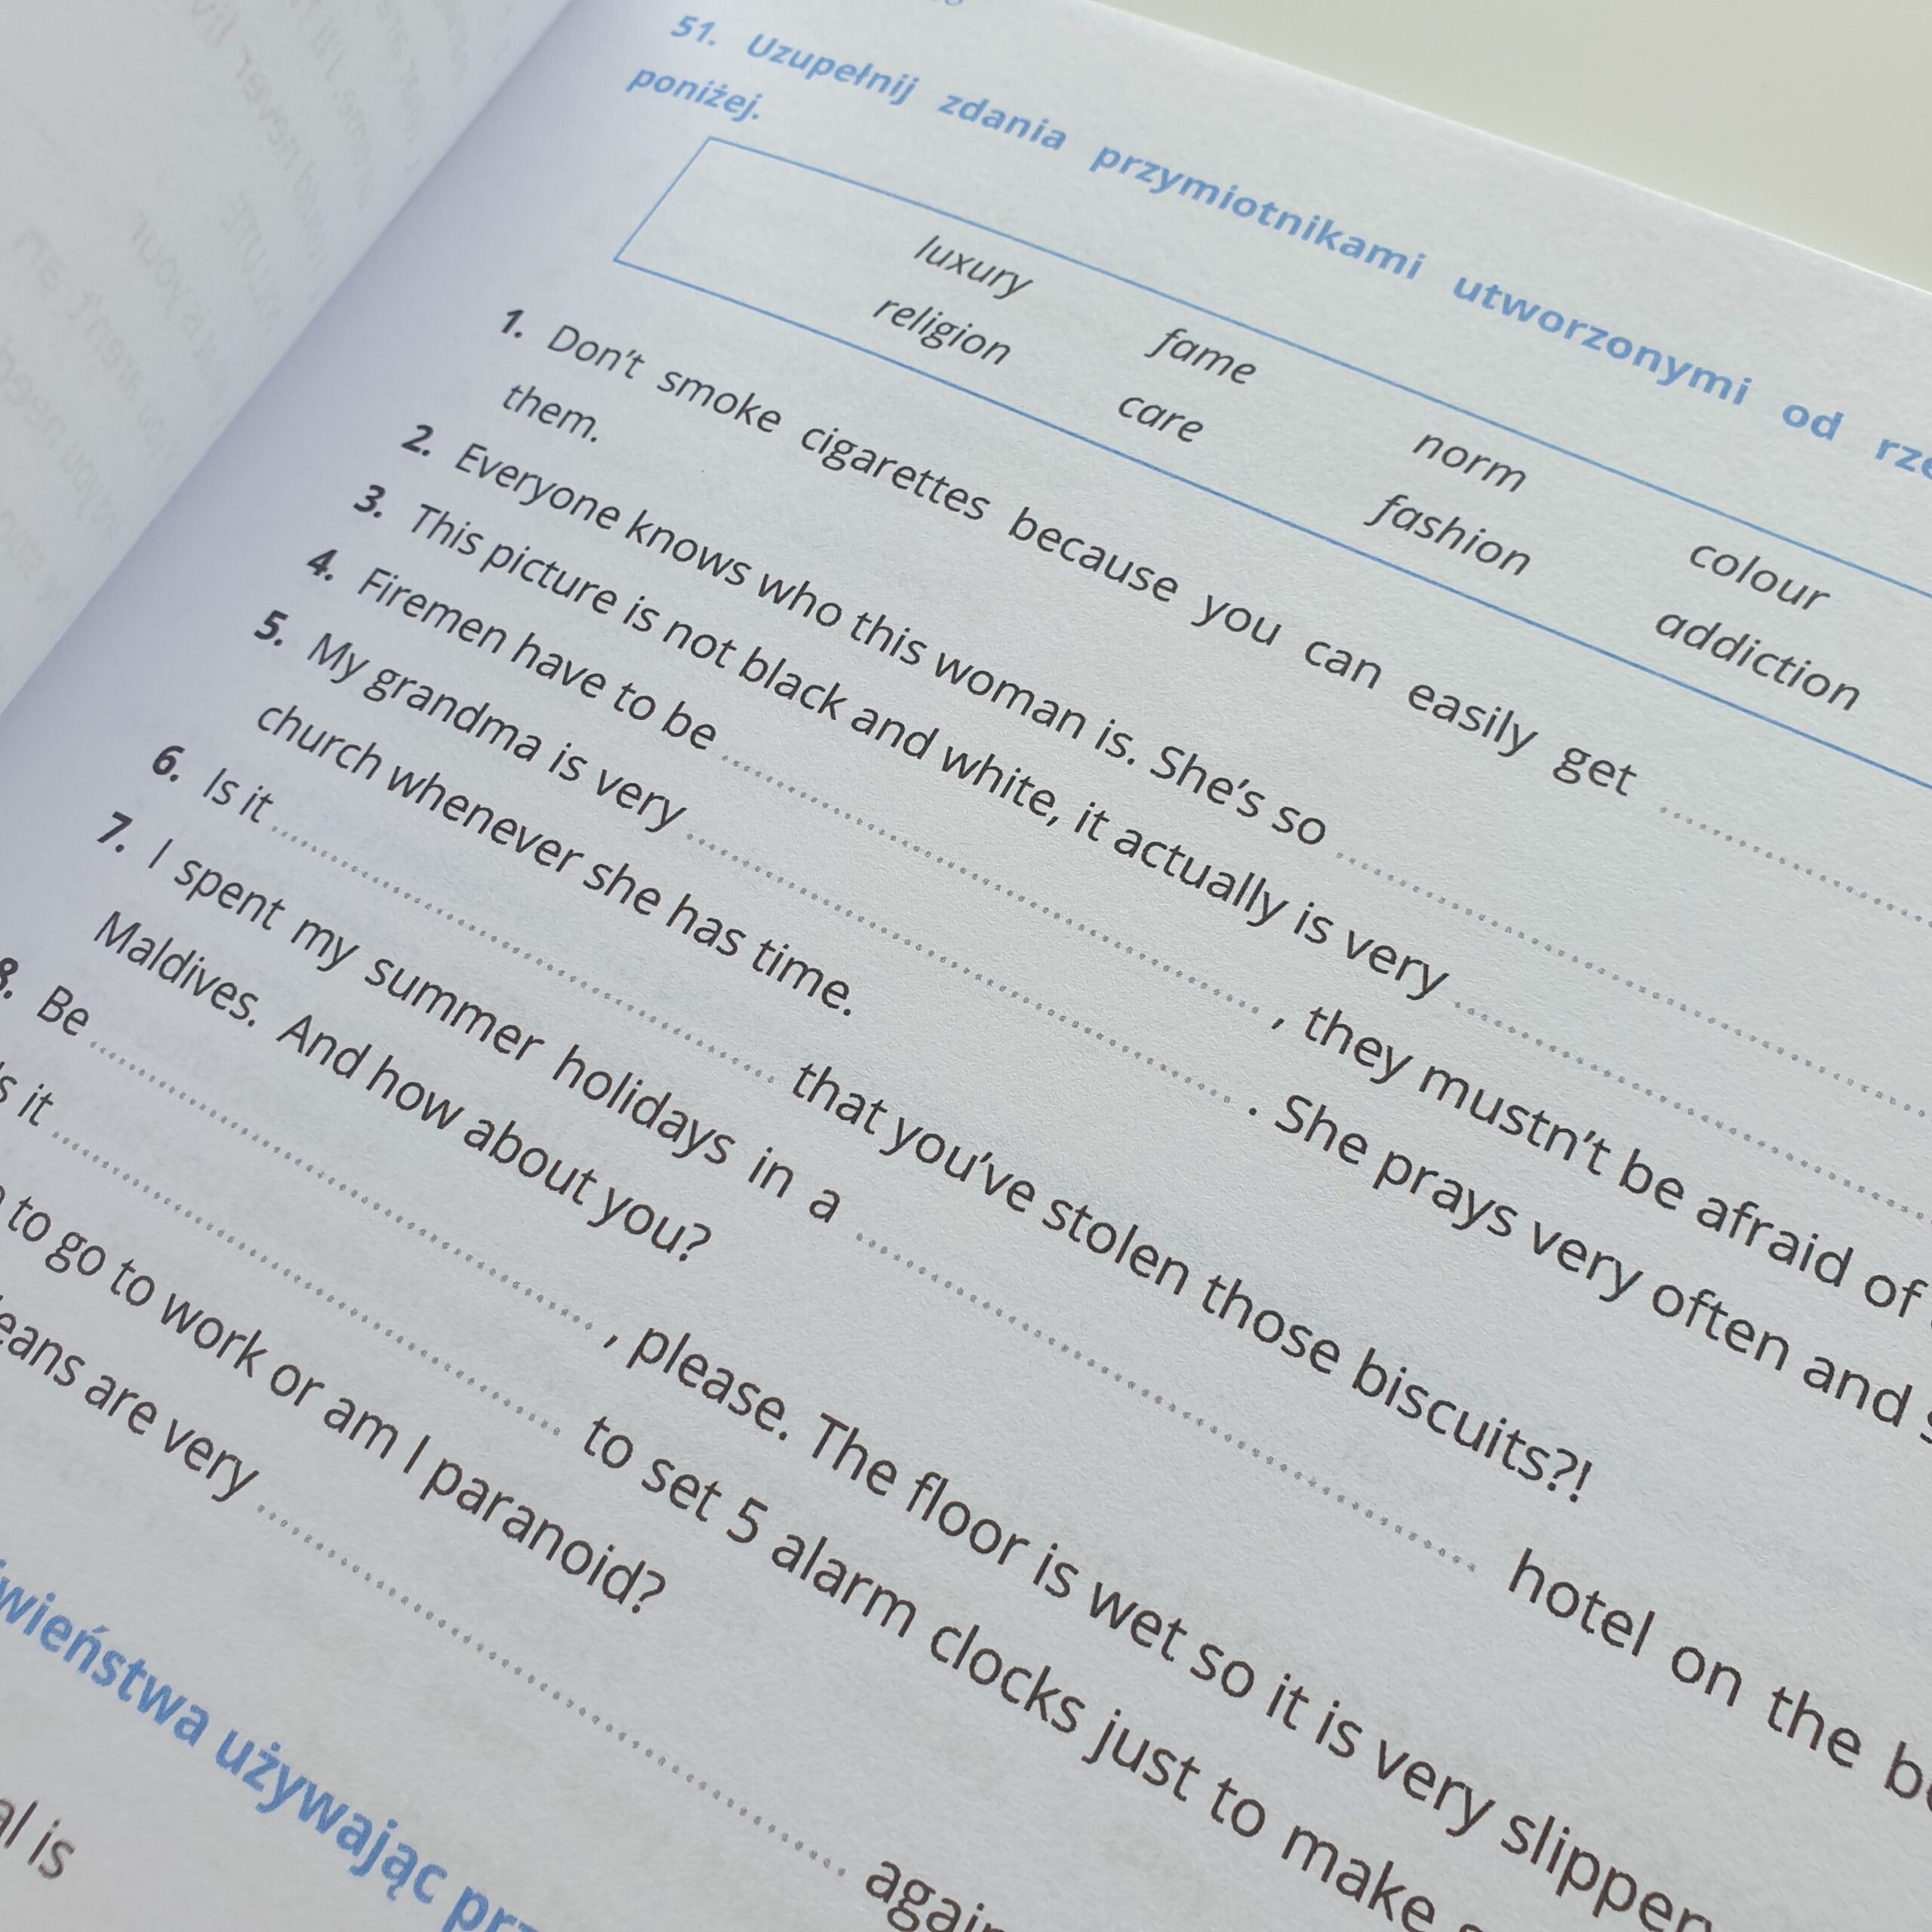 51. Uzupełnij zdania przymiotnikami utworzonymi od
poniżej.
luxury fame norm colour
religion care fashion addiction
1. Don't smoke cigarettes because you can easily get ........................
them.
2. Everyone knows who this woman is. She's so ........................
3. This picture is not black and white, it actually is very ........................
4. Firemen have to be ........................ , they mustn't be afraid of
5. My grandma is very ........................ . She prays very often and
church whenever she has time.
6. Is it ........................ that you've stolen those biscuits?!
7. I spent my summer holidays in a ........................ hotel on the
Maldives. And how about you?
8. Be ........................ , please. The floor is wet so it is very
it ........................ to set 5 alarm clocks just to make
to go to work or am I paranoid?
are very ........................
używając
is